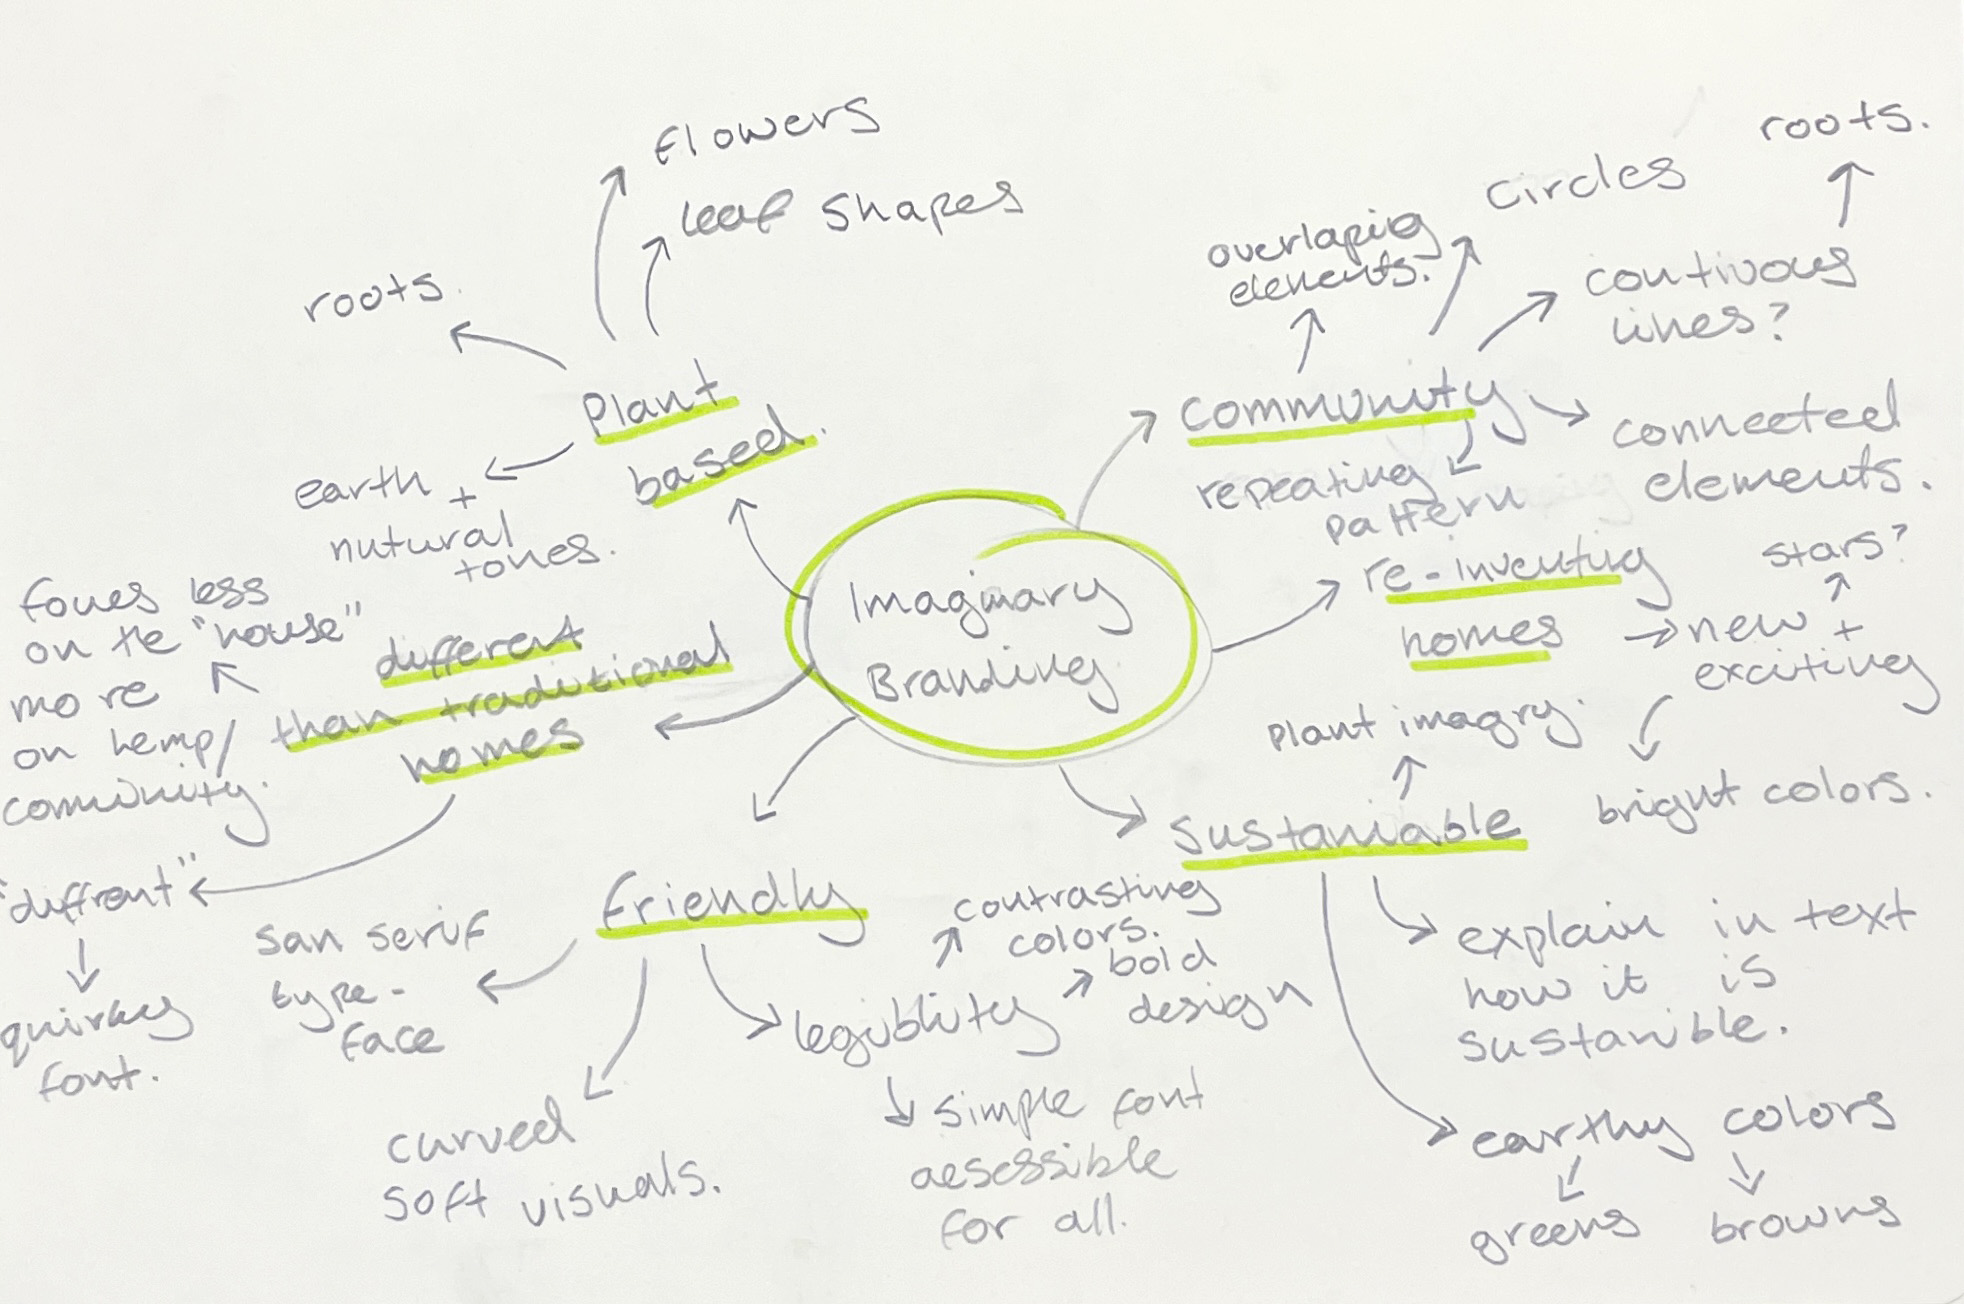 Imaginary
Branding
Plant
based.
Flowers
leaf shapes
roots.
earth +
nutural
tones.
community
overlapig
elements.
Circles
contivous
lines?
roots.
connected
elements.
repeating
pattern
re-inventing
homes
new +
exciting
stars?
bright colors.
Sustaniable
Plant imagry.
explain in text
how it is
sustanible.
earthy colors
greens
browns
Friendly
san serif
type-
face
curved
soft visuals.
legiblity
contrasting
colors.
bold
design
simple font
aesessible
for all.
different
than traditional
homes
foues less
on the "house"
more
on hemp/
community.
"diffrent"
quirkey
font.